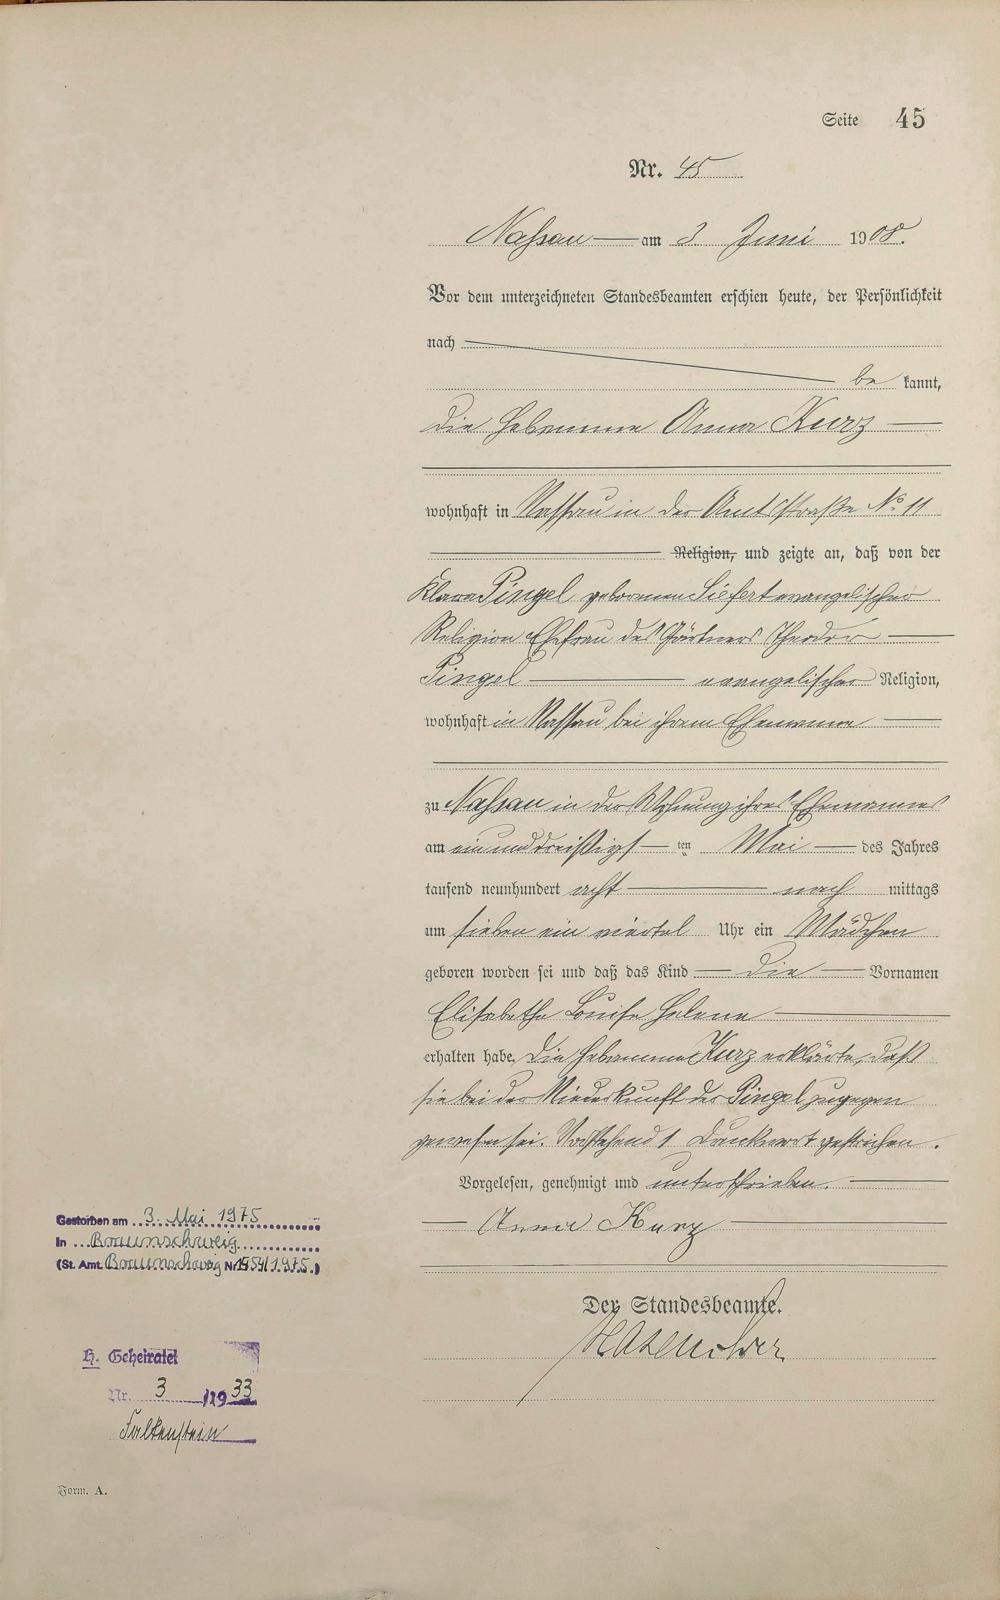 Seite 45
Nr. 45
Nassau am 3 Juni 1908.
Vor dem unterzeichneten Standesbeamten erschien heute, der Persönlichkeit
nach
be kannt,
die Hebamme Anna Kurz
wohnhaft in Nassau in der Amtsstraße No 11
Religion, und zeigte an, daß von der
Klara Pingel geborenen Siefert evangelischer
Religion Ehefrau des Gärtners Theodor
Pingel evangelischer Religion,
wohnhaft in Nassau bei ihrem Ehemanne
zu Nassau in der Wohnung ihres Ehemannes
am einunddreißigsten Mai des Jahres
tausend neunhundert acht nach mittags
um sieben ein viertel Uhr ein Mädchen
geboren worden sei und daß das Kind die Vornamen
Elisabetha Louise Helene
erhalten habe. Die Hebamme Kurz erklärte, daß
sie bei der Niederkunft der Pingel zugegen
gewesen sei. Vorstehend 1 Druckwort gestrichen.
Vorgelesen, genehmigt und unterschrieben.
Anna Kurz
Der Standesbeamte.
Gestorben am 3. Mai 1975
in Braunschweig
(St. Amt. Braunschweig Nr 1554/1975.)
H. Geheiratet
Nr. 3 /1933
Falkenstein
Form. A.